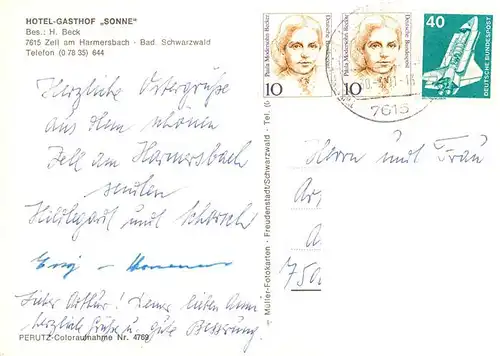 HOTEL-GASTHOF „SONNE"
Bes.: H. Beck
7615 Zell am Harmersbach - Bad. Schwarzwald
Telefon (0 78 35) 644
Herzliche Ostergrüße
aus dem schönen
Zell am Harmersbach
senden
Hildegard und
Lieber Arthur! Deiner lieben
herzliche Grüße u. gute Besserung
PERUTZ-Coloraufnahme Nr. 4769
Müller-Fotokarten - Freudenstadt/Schwarzwald - Tel.
Paula Modersohn-Becker
Deutsche Bundespost
10
Paula Modersohn-Becker
Deutsche Bundespost
10
40
DEUTSCHE BUNDESPOST
7615
Herrn und Frau
A
750